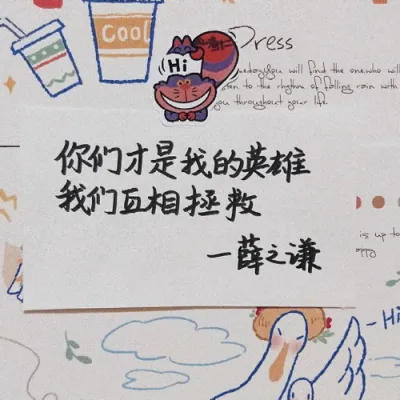 COOL
Hi
Dress
you will find the one who will
listen to the rhythm of falling rain with
you throughout your life.
你们才是我的英雄
我们互相拯救
—薛之谦
is up to
Hi